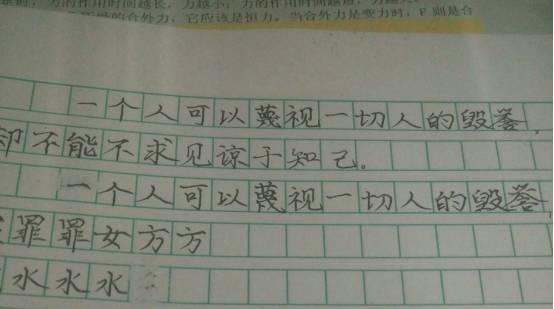 力的作用时间越长，力越小；力的作用时间越短，力越大。
的合外力，它应该是恒力。当合外力是变力时，F则是合
一个人可以蔑视一切人的毁誉，
却不能不求见谅于知己。
一个人可以蔑视一切人的毁誉，
罪罪女方方
水水水